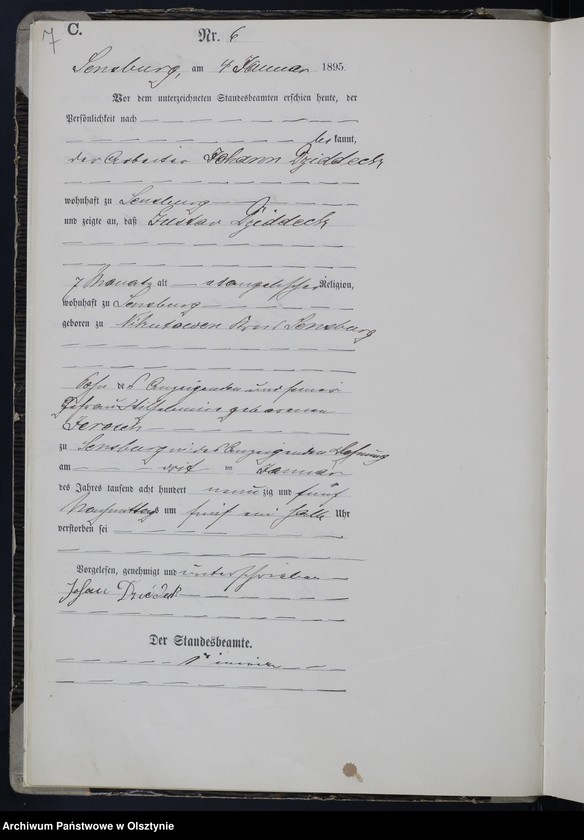 7 C.
Nr. 6
Sensburg, am 4 Januar 1895.
Vor dem unterzeichneten Standesbeamten erschien heute, der
Persönlichkeit nach
bekannt,
der Arbeiter Johann Dziddeck
wohnhaft zu Sensburg
und zeigte an, daß Gustav Dziddeck
7 Monate alt evangelischer Religion,
wohnhaft zu Sensburg
geboren zu Nikutowen Kreis Sensburg
Sohn des Anzeigenden und seiner
Ehefrau Wilhelmine geborenen
zu Sensburg in des Anzeigenden Wohnung
am drei ten Januar
des Jahres tausend acht hundert neun zig und fünf
Nachmittags um fünf ein halb Uhr
verstorben sei
Vorgelesen, genehmigt und unterschrieben
Johan Dziedek
Der Standesbeamte.
Archiwum Państwowe w Olsztynie